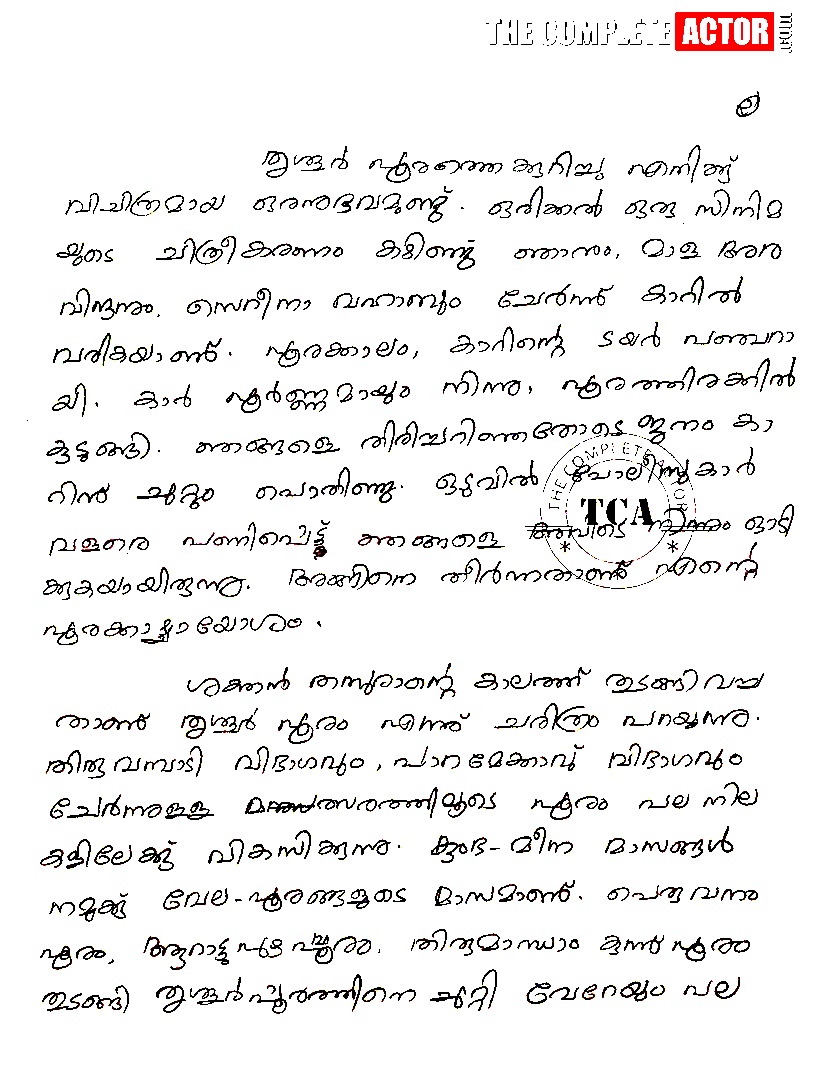 THE COMPLETE ACTOR .COM
തൃശ്ശൂർ പൂരത്തെക്കുറിച്ചു എനിക്ക്
വിചിത്രമായ ഒരനുഭവമുണ്ട്. ഒരിക്കൽ ഒരു സിനിമ
യുടെ ചിത്രീകരണം കഴിഞ്ഞ് ഞാനും, മാള അര
വിന്ദനും, സെറീനാ വഹാബും ചേർന്ന് കാറിൽ
വരികയാണ്. പൂരക്കാലം, കാറിന്റെ ടയർ പഞ്ചറാ
യി. കാർ പൂർണ്ണമായും നിന്നു, പൂരത്തിരക്കിൽ
കുടുങ്ങി. ഞങ്ങളെ തിരിച്ചറിഞ്ഞതോടെ ജനം കാ
റിന് ചുറ്റും പൊതിഞ്ഞു. ഒടുവിൽ പോലീസുകാർ
വളരെ പണിപ്പെട്ട് ഞങ്ങളെ അവിടെ നിന്നും ഓടി
ക്കുകയായിരുന്നു. അങ്ങിനെ തീർന്നതാണ് എന്റെ
പൂരക്കാഴ്ചായോഗം.
ശക്തൻ തമ്പുരാന്റെ കാലത്ത് തുടങ്ങിവച്ച
താണ് തൃശ്ശൂർ പൂരം എന്ന് ചരിത്രം പറയുന്നു.
തിരുവമ്പാടി വിഭാഗവും, പാറമേക്കാവ് വിഭാഗവും
ചേർന്നുള്ള മത്സരത്തിലൂടെ പൂരം പല നില
കളിലേക്ക് വികസിക്കുന്നു. കുംഭ-മീന മാസങ്ങൾ
നമുക്ക് വേല-പൂരങ്ങളുടെ മാസമാണ്. പെരുവനം
പൂരം, ആറാട്ടുപുഴ പൂരം, തിരുമാന്ധാം കുന്ന് പൂരം
തുടങ്ങി തൃശ്ശൂർപൂരത്തിനെ ചുറ്റി വേറേയും പല
THE COMPLETE ACTOR
TCA